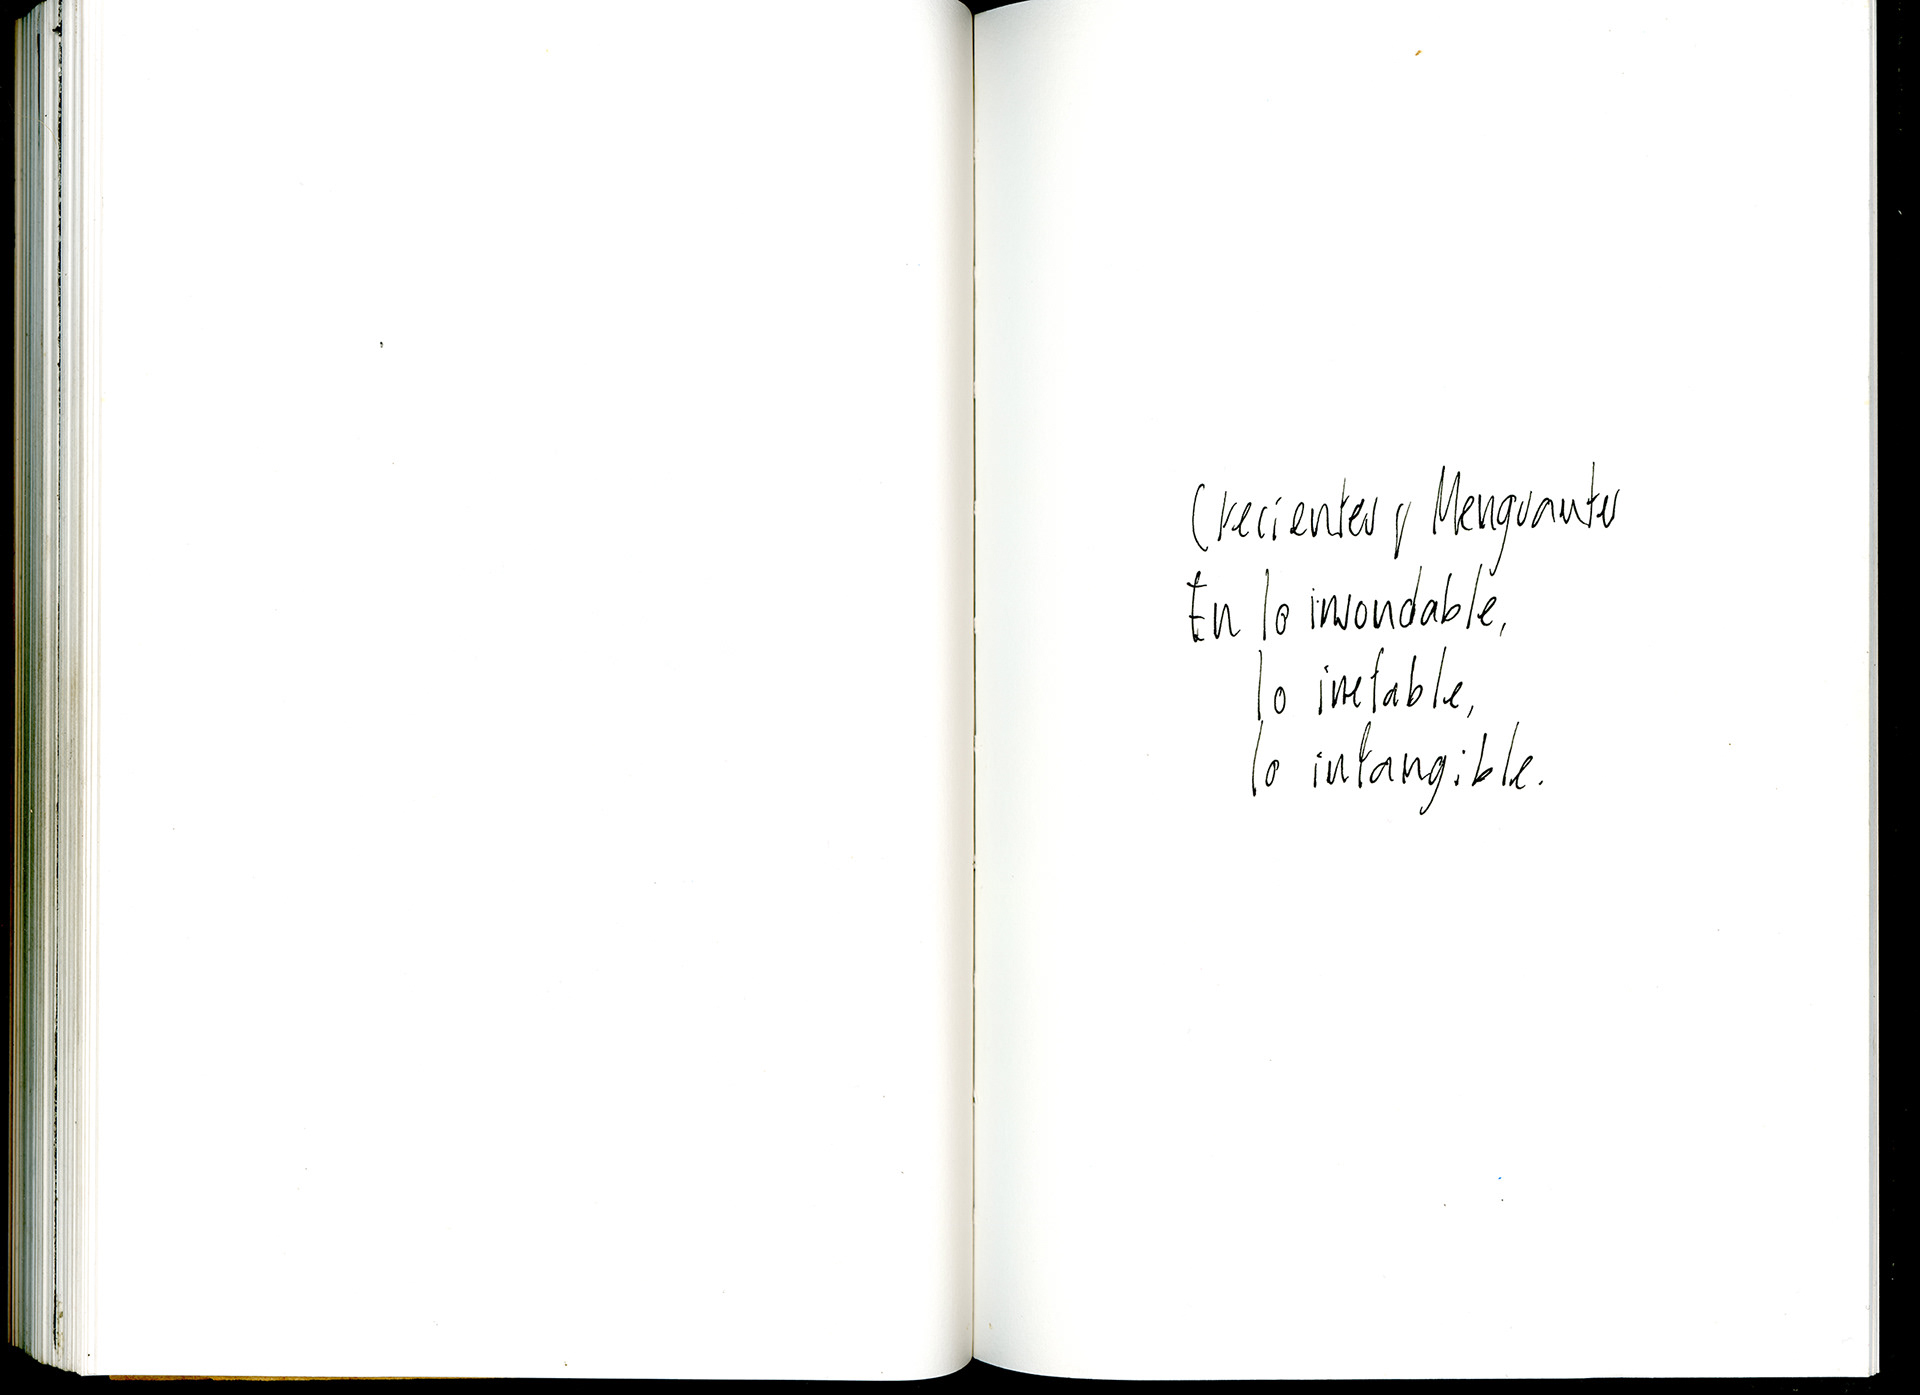 Crecientes y Menguantes
En lo insondable,
lo inefable,
lo intangible.